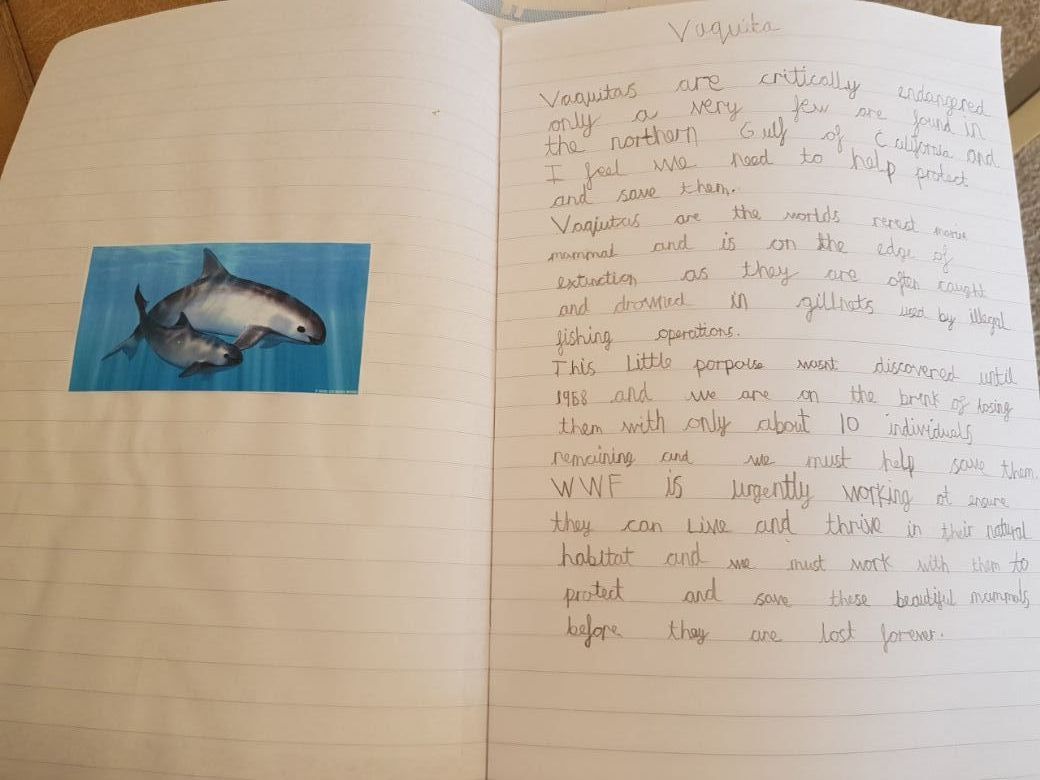 Vaquita
Vaquitas are critically endangered
only a very few are found in
the northern Gulf of California and
I feel we need to help protect
and save them.
Vaqiutas are the worlds rerest marine
mammal and is on the edge of
extinction as they are often caught
and drowned in gillnets used by illegal
fishing operations.
This Little porpoise wasnt discovered until
1958 and we are on the brink of losing
them with only about 10 individuals
remaining and we must help save them.
WWF is urgently working ot ensure
they can Live and thrive in their natural
habitat and we must work with them to
protect and save these beautiful mammals
before they are lost forever.